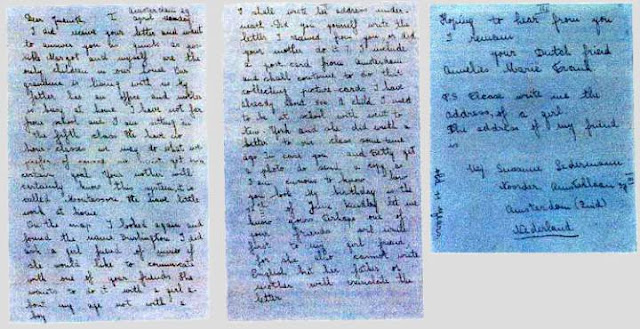 Amsterdam 29
Dear Juanita, I April Monday
I did receive your letter and want
to answer you as quick as possi-
ble. Margot and myself are the
only children in our house. Our
grandma is living with us. My
father has an office and mother
is busy at home. I have not far
from school and I am sitting in
the fifth class. We have no
hour classes we may do what we
prefer of course we must get to a
certain goal. Your mother will
certainly know this system, it is
called Montessori. We have little
work at home.
On the map I looked again and
found the name Burlington. I did
ask a girl friend of mine if
she would like to communicate
with one of your friends. She
wants to do it with a girl about
my age not with a
boy.
I shall write her address under-
neath. Did you yourself write the
letter I received from you, or did
your mother do it? I include
a post-card from Amsterdam
and shall continue to do that
collecting picture-cards I have
already about 800. A child I used
to be at school with went to
New-York and she did write a
letter to our class some time
ago. In case you and Betty get
a photo do send a copy as
I am curious to know how
you look. My birthday is the
12th of June. Kindly let me
know yours. Perhaps one of
your friends will write
first to my girl friend
for she also cannot write
English but her father or
mother will translate the
letter.
III
Hoping to hear from you
I remain
your Dutch friend
Annelies Marie Frank
P.S. Please write me the
address of a girl
The address of my friend
is
Susanne Ledermann
Noorder Amstellaan
Amsterdam (Zuid)
Nederland